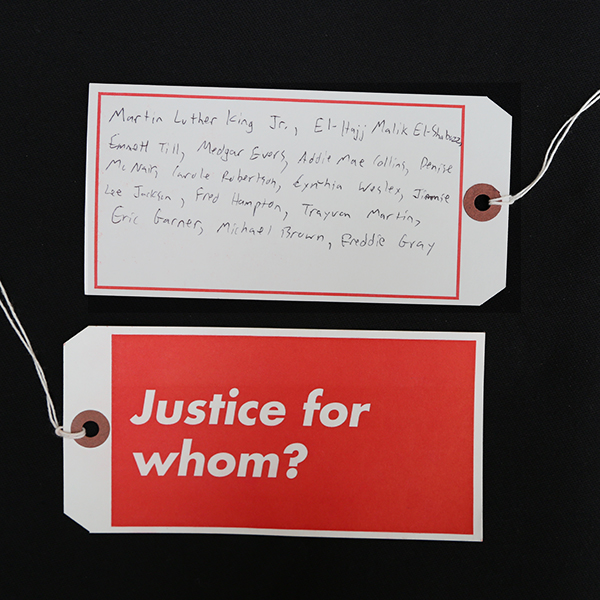 Martin Luther King Jr., El-Hajj Malik El-Shabazz,
Emmett Till, Medgar Evers, Addie Mae Collins, Denise
McNair, Carole Robertson, Cynthia Wesley, Jimmie
Lee Jackson, Fred Hampton, Trayvon Martin,
Eric Garner, Michael Brown, Freddie Gray
Justice for
whom?